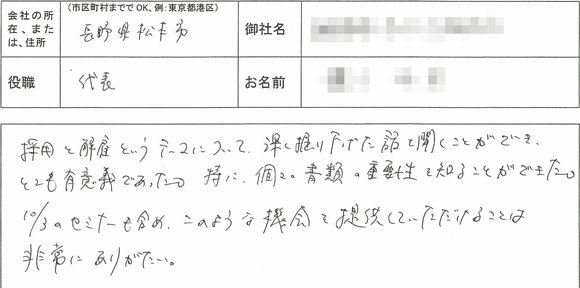 会社の所在、または、住所
(市区町村まででOK、例:東京都港区)
長野県松本市
御社名
役職
代表
お名前
採用と解雇というテーマについて、深く掘り下げた話を聞くことができ、
とても有意義であった。特に、個々の書類の重要性を知ることができた。
10/3のセミナーも含め、このような機会を提供していただけることは
非常にありがたい。